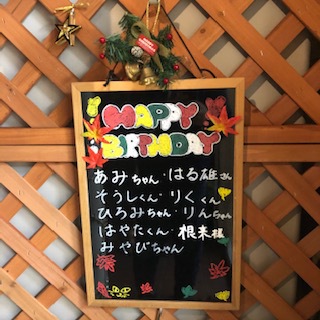 HAPPY
BIRTHDAY
あみちゃん・はる雄さん
そうしくん・りくくん
ひろみちゃん・りんちゃん
はやたくん・根来様
みやびちゃん